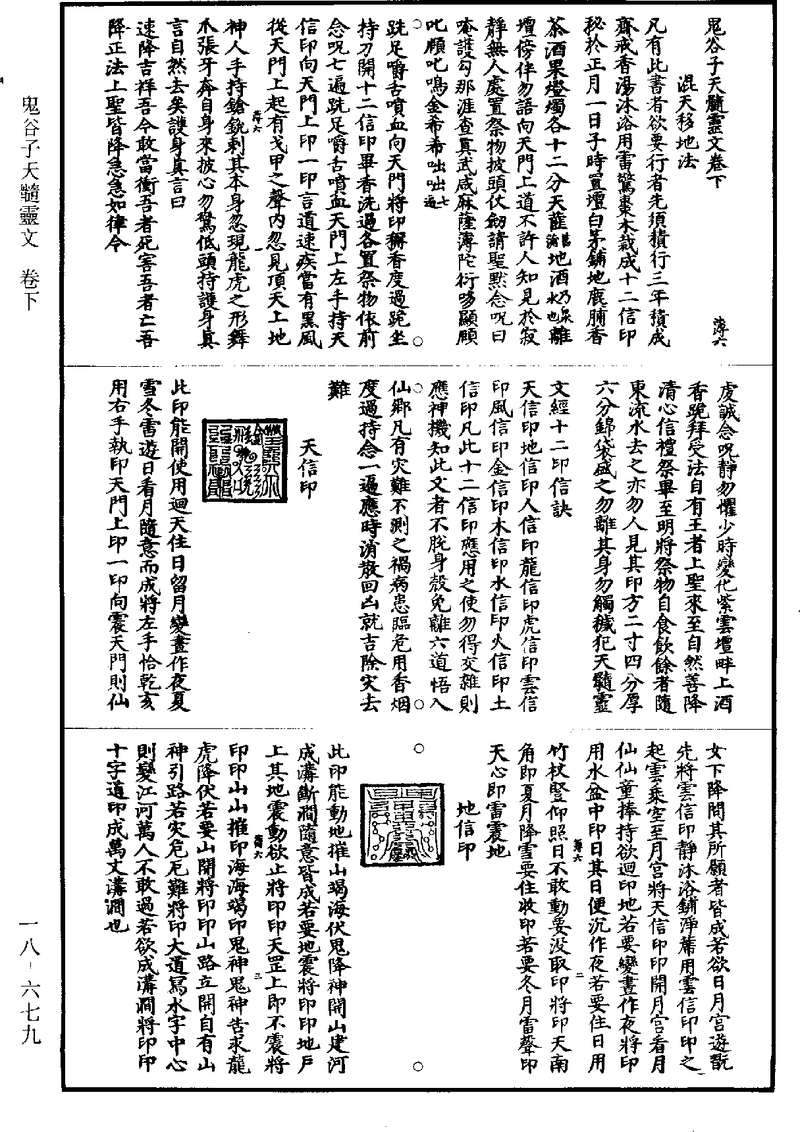 鬼谷子天髓靈文卷下
混天移地法
凡有此書者欲要行者先須積行三年積成
齋戒香湯沐浴用雷驚棗木裁成十二信印
秘於正月一日子時置壇白茅鋪地鹿脯香
茶酒果燈燭各十二分天薤地酒離
壇傍伴勿語向天門上道不許人知見於寂
靜無人處置祭物披頭仗劒請聖默念呪曰
唵護勾那涯查真武咸麻薩溥陀衍哆顯願
叱願叱鳴金希希咄咄七遍
跣足嚼舌噴血向天門將印獬香度過跪坐
持刀開十二信印畢香洗過各置祭物依前
念呪七遍跣足嚼舌噴血天門上左手持天
信印向天門上印一印言道速疾當有黑風
從天門上起有戈甲之聲內忽見頂天上地
神人手持鎗銃剌其本身忽現龍虎之形舞
爪張牙奔自身來披心勿驚低頭持護身真
言自然去矣護身真言曰
速降吉祥吾今敢當衝吾者死害吾者亡吾
降正法上聖皆降急急如律令
虔誠念呪靜勿懼少時變化紫雲壇畔上酒
香跪拜受法自有王者上聖來至自然善降
清心信禮祭畢至明將祭物自食飲餘者隨
東流水去之亦勿人見其印方二寸四分厚
六分錦袋盛之勿離其身勿觸穢犯天髓靈
文經十二印信訣
天信印地信印人信印龍信印虎信印雲信
印風信印金信印木信印水信印火信印土
信印凡此十二信印應用之使勿得交雜則
應神機知此文者不脫身殼免離六道悟入
仙鄉凡有灾難不測之禍病患臨危用香烟
度過持念一遍應時消散回凶就吉除灾去
難
天信印
此印能開使用迴天住日留月變晝作夜夏
雪冬雷遊日看月隨意而成將左手恰乾亥
用右手執印天門上印一印向震天門則仙
女下降問其所願者皆成若欲日月宮遊翫
先將雲信印靜沐浴鋪淨蓆用雲信印印之
起雲乘空至月宮將天信印印開月宮看月
仙仙童捧持欲迴印地若要變晝作夜將印
用水盆中印日其日便沉作夜若要住日用
竹杖豎仰照日不敢動要沒取印將印天南
角即夏月降雪要住收印若要冬月雷聲印
天心即雷震地
地信印
此印能動地摧山竭海伏鬼降神開山建河
成溝斷澗隨意皆成若要地震將印印地戶
上其地震動欲止將印印天罡上即不震將
印印山山摧印海海竭印鬼神鬼神告求龍
虎降伏若要山開將印印山路立開自有山
神引路若灾危厄難將印大道寫水字中心
則變江河萬人不敢過若欲成溝澗將印印
十字道印成萬丈溝澗也
鬼谷子天髓靈文 卷下
一八－六七九